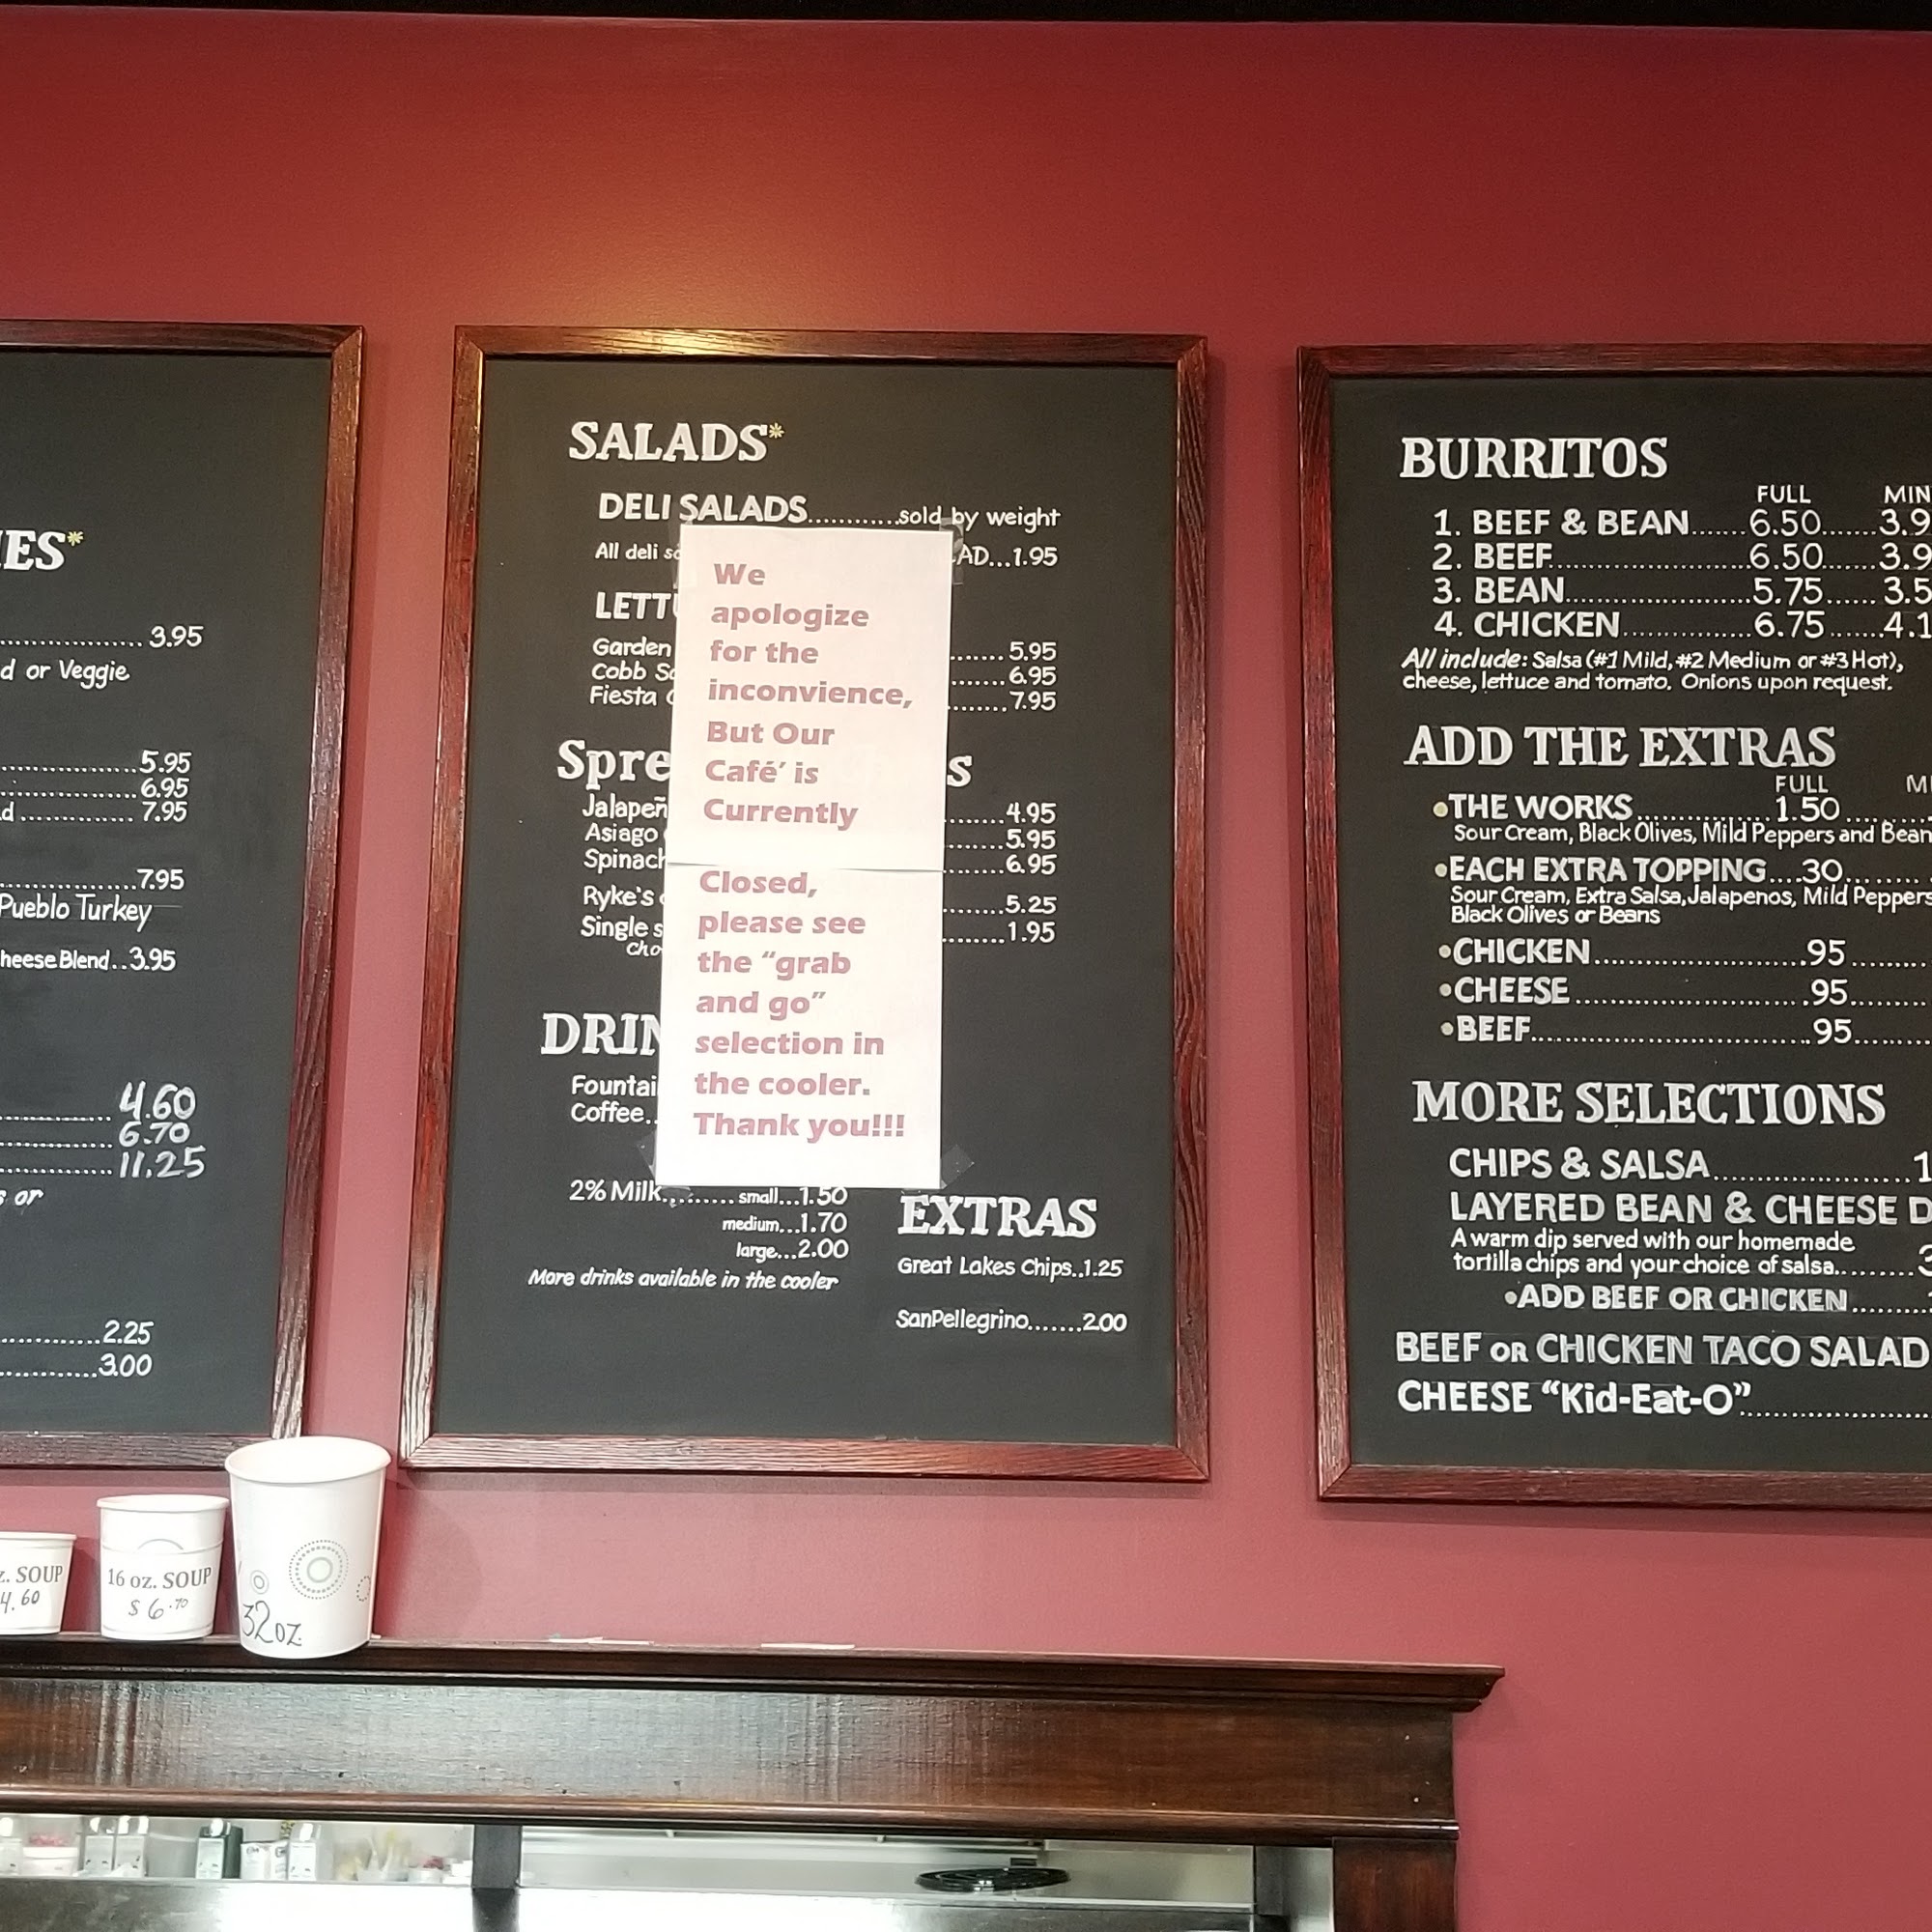 IES*
3.95
d or Veggie
5.95
6.95
d 7.95
7.95
Pueblo Turkey
heese Blend..3.95
4.60
6.70
11.25
s or
2.25
3.00
z. SOUP
4.60
16 oz. SOUP
$ 6.70
32oz.
SALADS*
DELI SALADS............sold by weight
All deli sa AD...1.95
LETTU
Garden 5.95
Cobb Sa 6.95
Fiesta C 7.95
Spre s
Jalapeñ 4.95
Asiago 5.95
Spinach 6.95
Ryke's 5.25
Single s 1.95
Cho
DRIN
Fountai
Coffee..
2% Milk.......... small...1.50
medium...1.70
large...2.00
More drinks available in the cooler
EXTRAS
Great Lakes Chips..1.25
SanPellegrino.......2.00
We
apologize
for the
inconvience,
But Our
Café' is
Currently
Closed,
please see
the “grab
and go”
selection in
the cooler.
Thank you!!!
BURRITOS
FULL MIN
1. BEEF & BEAN.......6.50.......3.9
2. BEEF.........................6.50.......3.9
3. BEAN.......................5.75.......3.5
4. CHICKEN...............6.75.......4.1
All include: Salsa (#1 Mild, #2 Medium or #3 Hot),
cheese, lettuce and tomato. Onions upon request.
ADD THE EXTRAS
FULL MI
•THE WORKS.................1.50.......
Sour Cream, Black Olives, Mild Peppers and Bean
•EACH EXTRA TOPPING....30.......
Sour Cream, Extra Salsa, Jalapenos, Mild Peppers
Black Olives or Beans
•CHICKEN..........................95.......
•CHEESE............................95.......
•BEEF..................................95.......
MORE SELECTIONS
CHIPS & SALSA....................1
LAYERED BEAN & CHEESE D
A warm dip served with our homemade
tortilla chips and your choice of salsa.........3
•ADD BEEF OR CHICKEN.......
BEEF OR CHICKEN TACO SALAD
CHEESE “Kid-Eat-O”...................